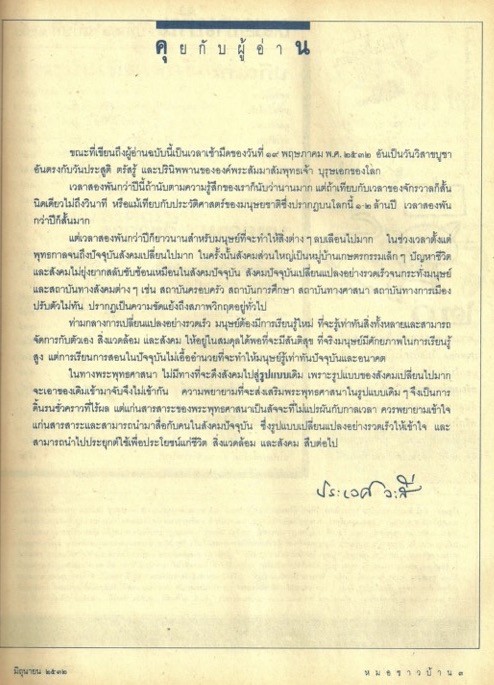 คุยกับผู้อ่าน
ขณะที่เขียนถึงผู้อ่านฉบับนี้เป็นเวลาเช้ามืดของวันที่ ๑๙ พฤษภาคม พ.ศ. ๒๕๓๒ อันเป็นวันวิสาขบูชา
อันตรงกับวันประสูติ ตรัสรู้ และปรินิพพานขององค์พระสัมมาสัมพุทธเจ้า บุรุษเอกของโลก
เวลาสองพันกว่าปีนี้ถ้านับตามความรู้สึกของเราก็นับว่านานมาก แต่ถ้าเทียบกับเวลาของจักรวาลก็สั้น
นิดเดียวไม่ถึงวินาที หรือแม้เทียบกับประวัติศาสตร์ของมนุษยชาติซึ่งปรากฏบนโลกนี้ ๑-๒ ล้านปี เวลาสองพัน
กว่าปีก็สั้นมาก
แต่เวลาสองพันกว่าปีก็ยาวนานสำหรับมนุษย์ที่จะทำให้สิ่งต่าง ๆ ลบเลือนไปมาก ในช่วงเวลาตั้งแต่
พุทธกาลจนถึงปัจจุบันสังคมเปลี่ยนไปมาก ในครั้งนั้นสังคมส่วนใหญ่เป็นหมู่บ้านเกษตรกรรมเล็ก ๆ ปัญหาชีวิต
และสังคมไม่ยุ่งยากสลับซับซ้อนเหมือนในสังคมปัจจุบัน สังคมปัจจุบันเปลี่ยนแปลงอย่างรวดเร็วจนกระทั่งมนุษย์
และสถาบันทางสังคมต่าง ๆ เช่น สถาบันครอบครัว สถาบันการศึกษา สถาบันทางศาสนา สถาบันทางการเมือง
ปรับตัวไม่ทัน ปรากฏเป็นความขัดแย้งถึงสภาพวิกฤตอยู่ทั่วไป
ท่ามกลางการเปลี่ยนแปลงอย่างรวดเร็ว มนุษย์ต้องมีการเรียนรู้ใหม่ ที่จะรู้เท่าทันสิ่งทั้งหลายและสามารถ
จัดการกับตัวเอง สิ่งแวดล้อม และสังคม ให้อยู่ในสมดุลได้พอที่จะมีสันติสุข ที่จริงมนุษย์มีศักยภาพในการเรียนรู้
สูง แต่การเรียนการสอนในปัจจุบันไม่เอื้ออำนวยที่จะทำให้มนุษย์รู้เท่าทันปัจจุบันและอนาคต
ในทางพระพุทธศาสนา ไม่มีทางที่จะดึงสังคมไปสู่รูปแบบเดิม เพราะรูปแบบของสังคมเปลี่ยนไปมาก
จะเอาของเดิมเข้ามาจับจึงไม่เข้ากัน ความพยายามที่จะส่งเสริมพระพุทธศาสนาในรูปแบบเดิม ๆ จึงเป็นการ
ดิ้นรนชั่วคราวที่ไร้ผล แต่แก่นสารสาระของพระพุทธศาสนาเป็นสัจจะที่ไม่แปรผันกับกาลเวลา ควรพยายามเข้าใจ
แก่นสารสาระและสามารถนำมาสื่อกับคนในสังคมปัจจุบัน ซึ่งรูปแบบเปลี่ยนแปลงอย่างรวดเร็วให้เข้าใจ และ
สามารถนำไปประยุกต์ใช้เพื่อประโยชน์แก่ชีวิต สิ่งแวดล้อม และสังคม สืบต่อไป
ประเวศ วะสี
มิถุนายน ๒๕๓๒ หมอชาวบ้าน ๓